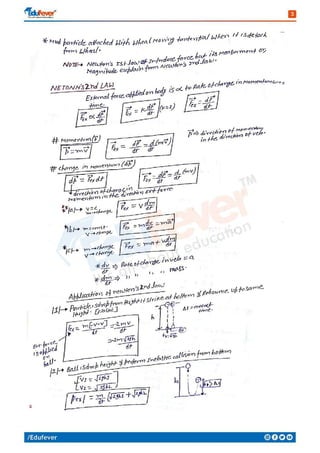 Edufever
3
* Mud particle attached with wheel moving tangential when it is detach
from wheel.
NOTE → Newton's Ist law introduce force but its measurement or
Magnitude explain from Newton's 2nd law.
NETONN'S 2nd LAW
External force applied on body is ∝ to Rate of change in momentum
time.
F⃗ex ∝ dp⃗/dt
F⃗ex = K dp⃗/dt (K=1)
F⃗ex = dp⃗/dt
# Momentum (p⃗)
p⃗ = mv⃗
F⃗ex = dp⃗/dt = d(mv⃗)/dt
p⃗ ⇒ direction of momentum
in the direction of velo.
# change in momentum (dp⃗)
dp⃗ = F⃗ex dt
F⃗ex = dp⃗/dt = d/dt (mv)
* direction of change in
momentum in the direction ext force
(a) → v = c
m → change
F⃗ex = v dm/dt
(b) → m = const.
v → change
F⃗ex = m dv⃗/dt = ma⃗
(c) → m → change
v → change
F⃗ex = ma + v dm/dt
* dv/dt ⇒ Rate of change in velo = a
* dm/dt ⇒ " " " " mass.
Application of newton's 2nd law
(1) → Particle stub from height it strike at bottom & Rebounce up to same
height.
Δt = contact
time.
Fex = m[-v-v]/dt = -2mv/dt
h
ball.
(2) → Ball
height & Perform inelastic collision from bottom
V1 = √2gh1
V2 = √2gh2
|Fex| = m/dt (√2gh1 + √2gh2)
education
TM
/Edufever